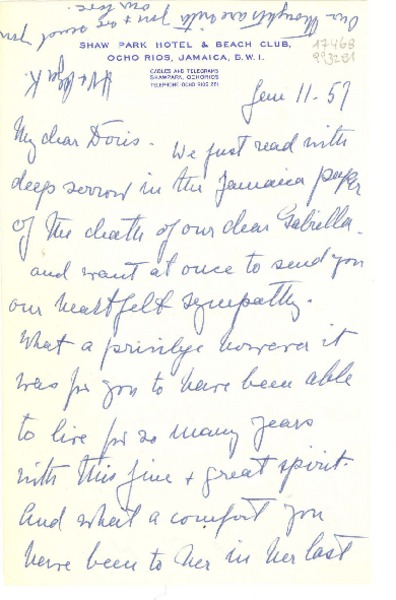 Our thoughts are with you & we send you
our love.
H V & Olga K.
SHAW PARK HOTEL & BEACH CLUB,
OCHO RIOS, JAMAICA, B.W.I.
CABLES AND TELEGRAMS
SHAWPARK, OCHORIOS
TELEPHONE: OCHO RIOS 221
17468
993281
Jan 11-57
My dear Doris - We just read with
deep sorrow in the Jamaica paper
of the death of our dear Gabriella -
and want at once to send you
our heartfelt sympathy.
What a privilege however it
was for you to have been able
to live for so many years
with this fine & great spirit.
And what a comfort you
have been to her in her last